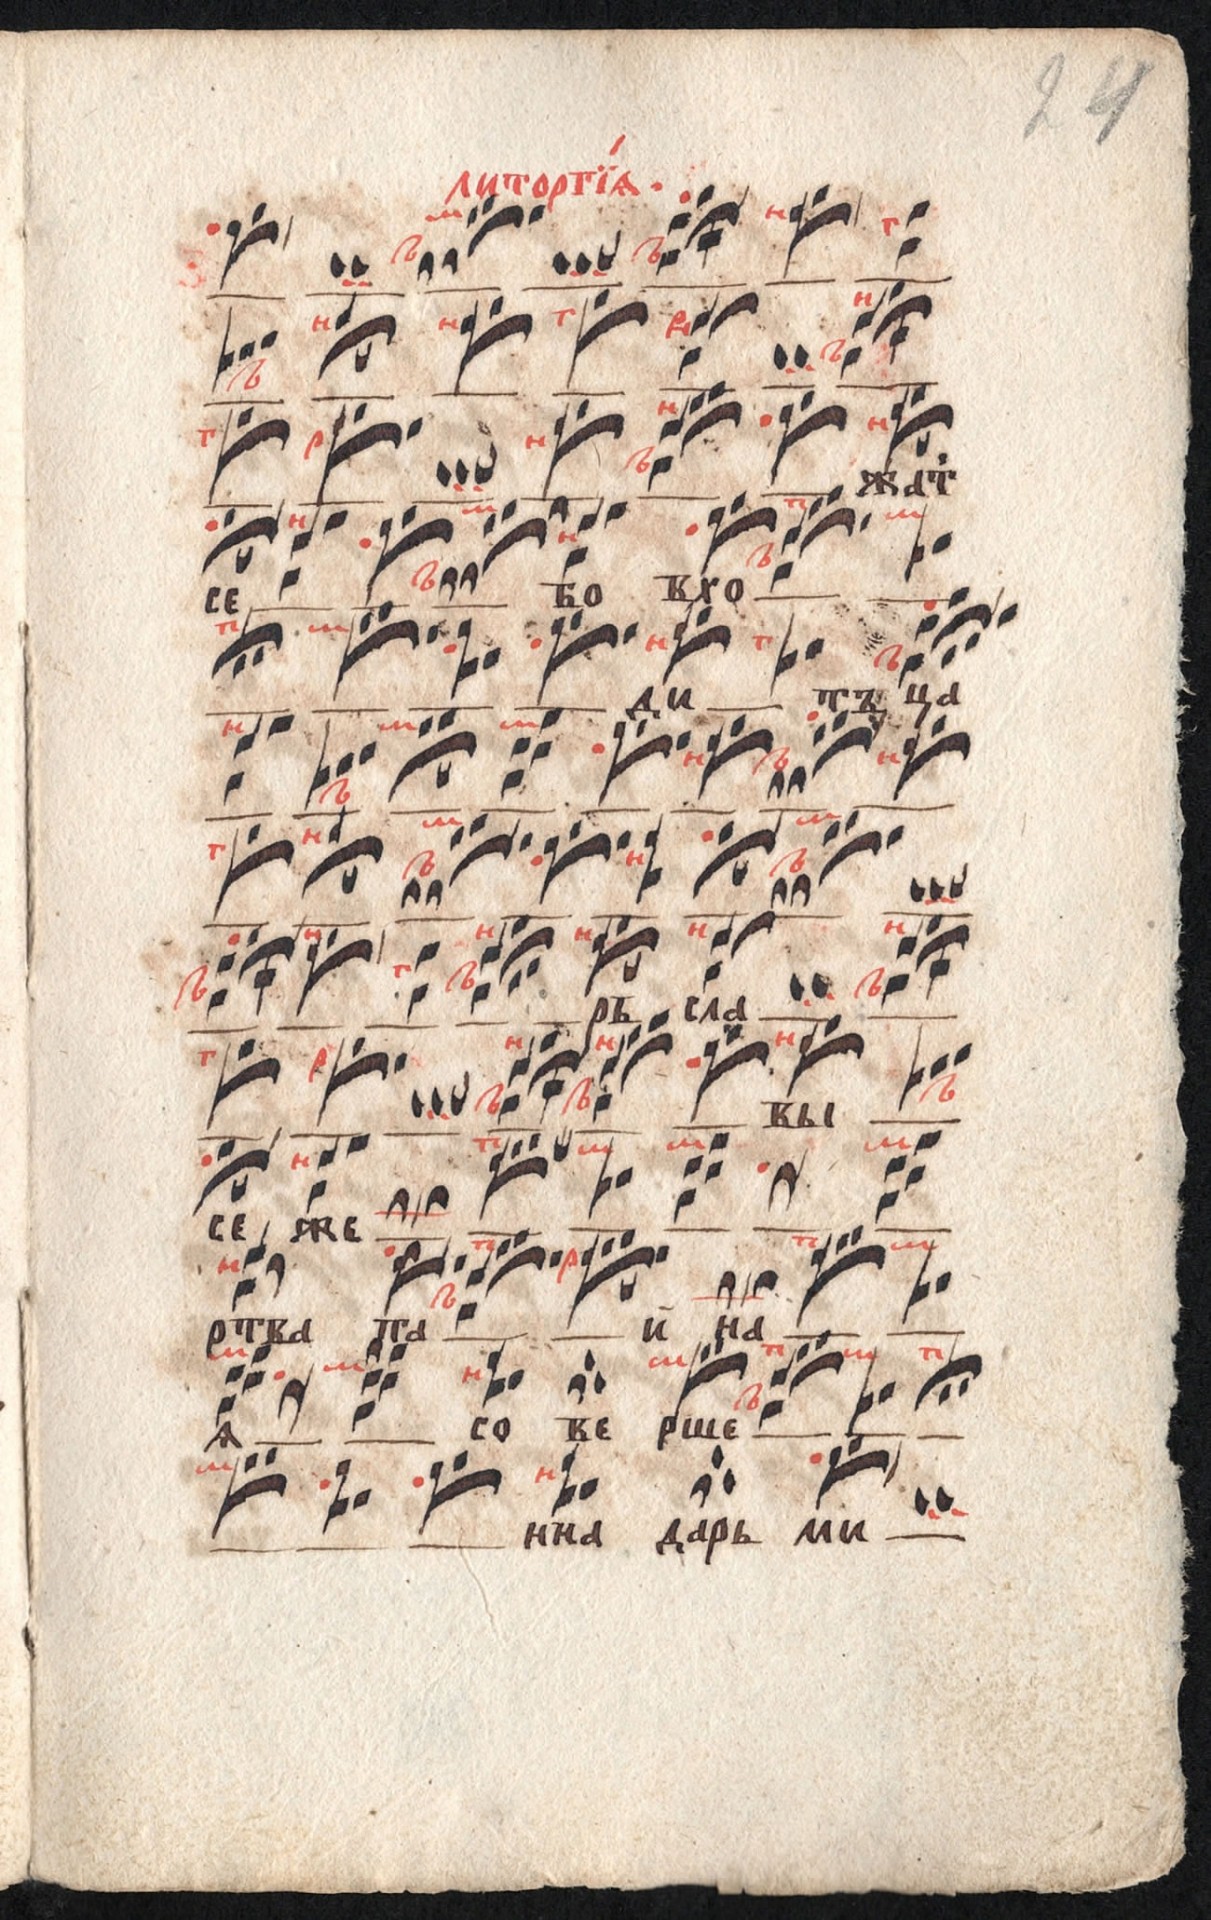 24
литоргїѧ.
жат
се бо вхо
ди тъ ца
рь сла
вы
се же
ртва та и на
ѧ со ве рше
нна дарь ми